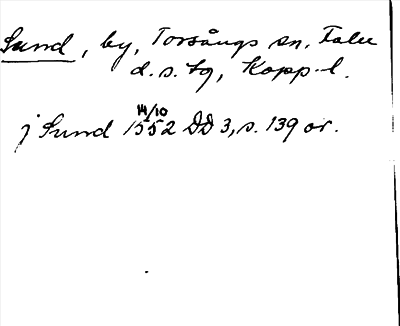 Sund, by, Torsångs sn, Falu
d.s. tg, Kopp. l.
j Sund 14/10 1552 DD 3, s. 139 or.